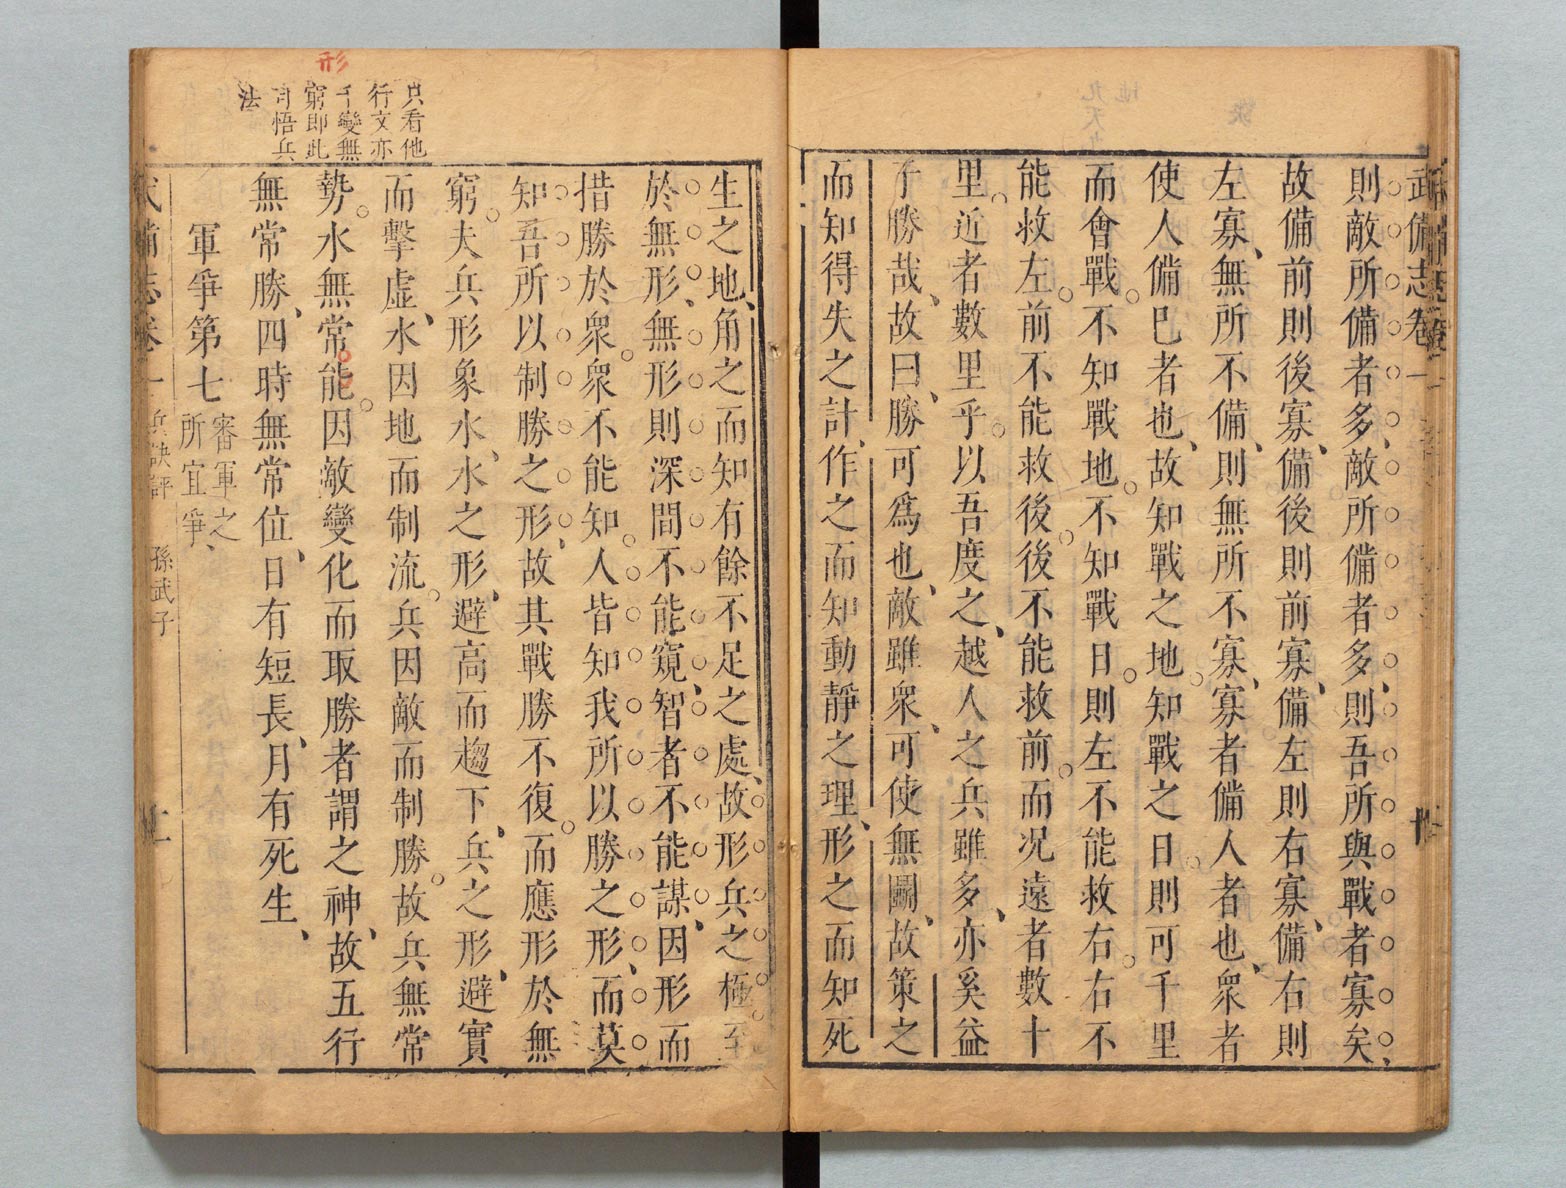 武備志卷一
則敵所備者多、敵所備者多、則吾所與戰者寡矣、
故備前則後寡、備後則前寡、備左則右寡、備右則
左寡、無所不備、則無所不寡、寡者備人者也、衆者
使人備巳者也、故知戰之地。知戰之日。則可千里
而會戰。不知戰地。不知戰日。則左不能救右。右不
能救左。前不能救後。後不能救前。而况遠者數十
里。近者數里乎。以吾度之、越人之兵雖多、亦奚益
于勝哉、故曰、勝可爲也、敵雖衆、可使無鬬、故策之
而知得失之計、作之而知動靜之理、形之而知死
生之地、角之而知有餘不足之處、故形兵之極至
於無形、無形則深間不能窺、智者不能謀、因形而
措勝於衆。衆不能知。人皆知我所以勝之形、而莫
知吾所以制勝之形、故其戰勝不復。而應形於無
窮。夫兵形象水、水之形、避高而趨下、兵之形、避實
而擊虛、水因地而制流。兵因敵而制勝。故兵無常
勢。水無常能。因敵變化而取勝者謂之神、故五行
無常勝、四時無常位、日有短長、月有死生、
軍爭第七
審軍之
所宜爭、
武備志卷一 兵訣評 孫武子
形
只看他
行文亦
千變無
窮即此
可悟兵
法